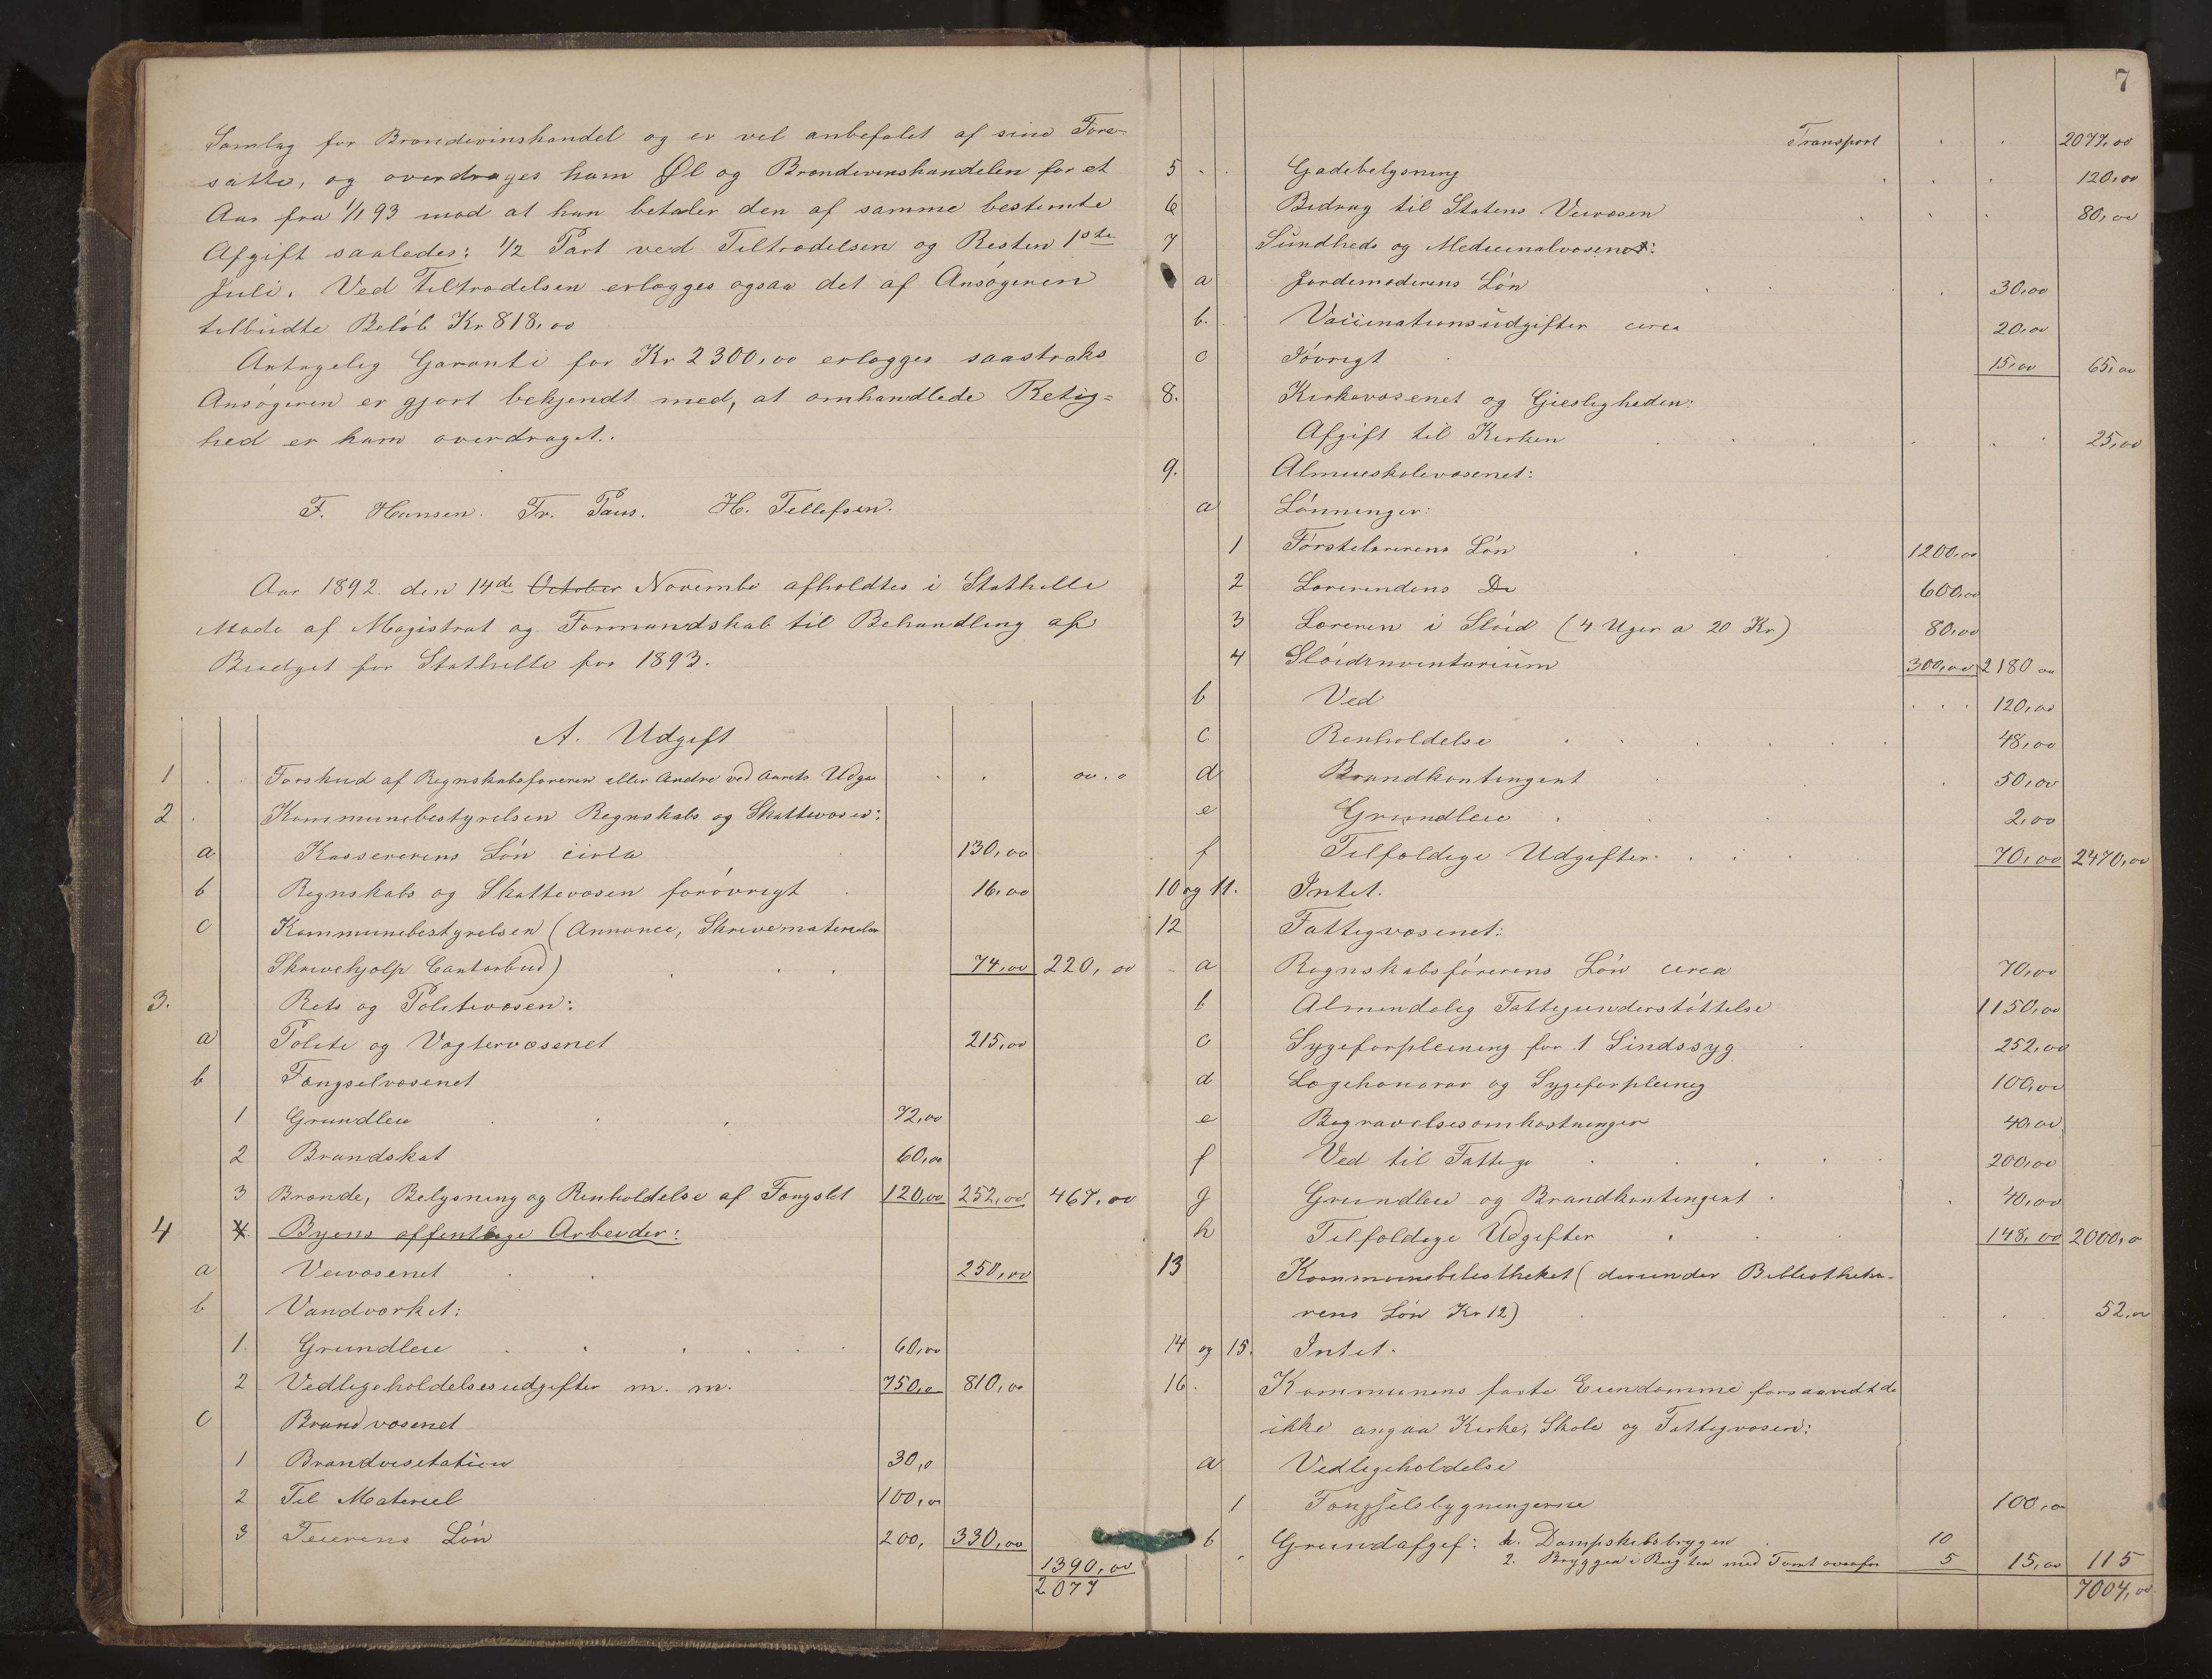 Samlag for Brændevinshandel og er vel anbefalet af sine Fore-
satte, og overdrages ham Øl og Brændevinshandelen for et
Aar fra 1/1 93 mod at han betaler den af samme bestemte
Afgift saaledes: 1/2 Part ved Tiltrædelsen og Resten 1ste
Juli. Ved Tiltrædelsen erlægges ogsaa det af Ansøgeren
tilbudte Beløb Kr 818,00
Antagelig Garanti for Kr 2300,00 erlægges saastraks
Ansøgeren er gjort bekjendt med, at omhandlede Retig=
hed er ham overdraget.
F. Hansen. Fr. Paus. H. Tellefsen.
Aar 1892 den 14de October Novembe afholdtes i Stathelle
Møde af Magistrat og Formandskab til Behandling af
Budget for Stathelle for 1893.
A. Udgift
1 Forskud af Regnskabsføreren eller Andre ved Aarets Udga 00.0
2 Kommunebestyrelsen Regnskabs og Skattevæsen:
a Kassererens Løn circa 130,00
b Regnskabs og Skattevæsen forøvrigt 16,00
c Kommunebestyrelsen (Annonce, Skrivematerialer
Skrivehjælp Contorbud) 74,00 220,00
3. Rets og Politivæsen:
a Politi og Vægtervæsenet 215,00
b Fængselvæsenet
1 Grundleie 72,00
2 Brandskat 60,00
3 Brænde, Belysning og Renholdelse af Fængslet 120,00 252,00 467,00
4 Byens offentlige Arbeider:
a Veivæsenet 250,00
b Vandværket:
1. Grundleie 60,00
2 Vedligeholdelsesudgifter m. m. 750,0 810,00
c Brandvæsenet
1 Brandvisitation 30,0
2 Til Materiel 100,00
3 Feierens Løn 200, 330,00
1390,00
2077
7
Transport 2077,00
5 Gadebelysning 120,00
6 Bidrag til Statens Veivæsen 80,00
7 Sundheds og Medicinalvæsenet:
a Jordemoderens Løn 30,00
b. Vaccinationsudgifter circa 20,00
c Iøvrigt 15,00 65,00
8. Kirkevæsenet og Gieistligheden:
Afgift til Kirken 25,00
9. Almueskolevæsenet:
a Lønninger:
1 Førstelærerens Løn 1200,00
2 Lærerindens Do 600,00
3 Læreren i Sløid (4 Uger a 20 Kr) 80,00
4 Sløidinventarium 300,00 2180 00
b Ved 120,00
c Renholdelse 48,00
d Brandkontingent 50,00
e Grundleie 2,00
f Tilfældige Udgifter 70,00 2470,00
10 og 11. Intet.
12 Fattigvæsenet:
a Regnskabsførerens Løn circa 70,00
b Almindelig Fattigunderstøttelse 1150,00
c Sygeforpleining for 1 Sindssyg 252,00
d Lægehonorar og Sygeforpleinig 100,00
e Begravelsesomkostninger 40,00
f Ved til Fattige 200,00
g Grundleie og Brandkontingent 40,00
h Tilfældige Udgifter 148,00 2000,0
13 Kommunebibliotheket (derunder Bibliotheka-
rens Løn Kr 12) 52,00
14 og 15. Intet.
16. Kommunens faste Eiendomme forsaavidt de
ikke angaa Kirke, Skole og Fattigvæsen:
a Vedligeholdelse
1 Fængselsbygningerne 100,00
b Grundafgif: 1. Dampskibsbryggen 10
2. Bryggen i med Tomt ovenfor 5 15,00 115
7004,00